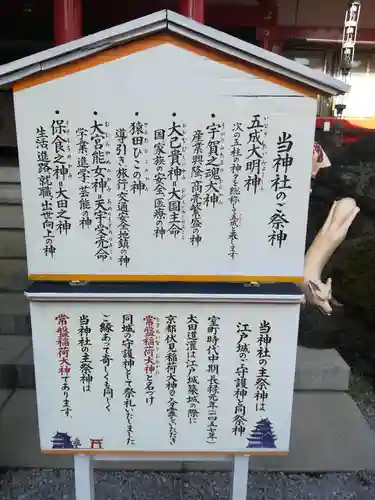 当神社のご祭神
五成大明神
次の五柱の神を総称して五成と奉る
・宇賀之魂大神
産業興隆、商売繁盛の神
・大己貴神＝大国主命
国家、家族の安全、医療の神
・猿田ひこの神
導引き、旅行、交通安全、地鎮の神
・大宮能女神＝天宇受売命
学業、進学、芸能の神
・保食之神＝大田之神
生活、進路、就職、出世向上の神
当神社の主祭神は
江戸城のご守護神と同祭神
室町時代中期 長禄元年（一四五七年）
太田道灌は江戸城築城の際に
京都伏見稲荷大神の分霊をいただき
常盤稲荷大神と名づけ
同城の守護神として祭礼いたしました
ご縁あって奇しくも同じく
当神社の主祭神は
常盤稲荷大神であります。